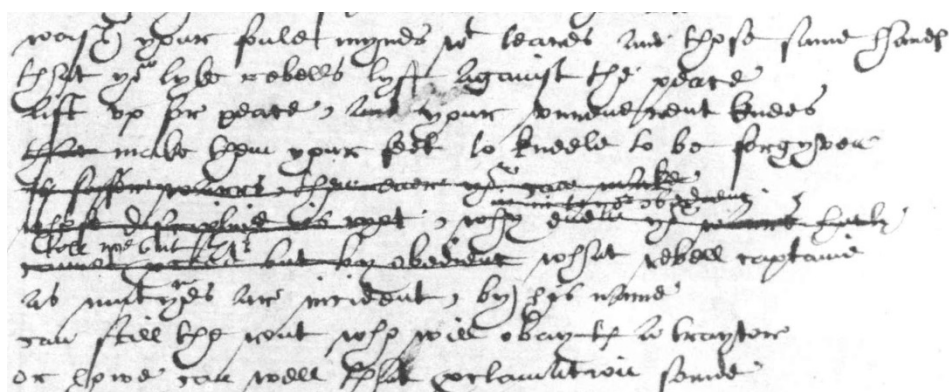 wash your foule mynds wt teares and those same handes
that yo lyke rebells lyft against the peace
lift vp for peace, and your vnreuerent knees
that make them your feet to kneele to be forgyven
is safer warrs, then euer yo can make
in in to yor obedienc
whose discipline is ryot, why euen yor warrs hurly
tell me but this
cannot proceed but by obedienc what rebell captaine
as mutynes ar incident, by his name
can still the rout who will obay th a traytor
or howe can well that proclamation sounde